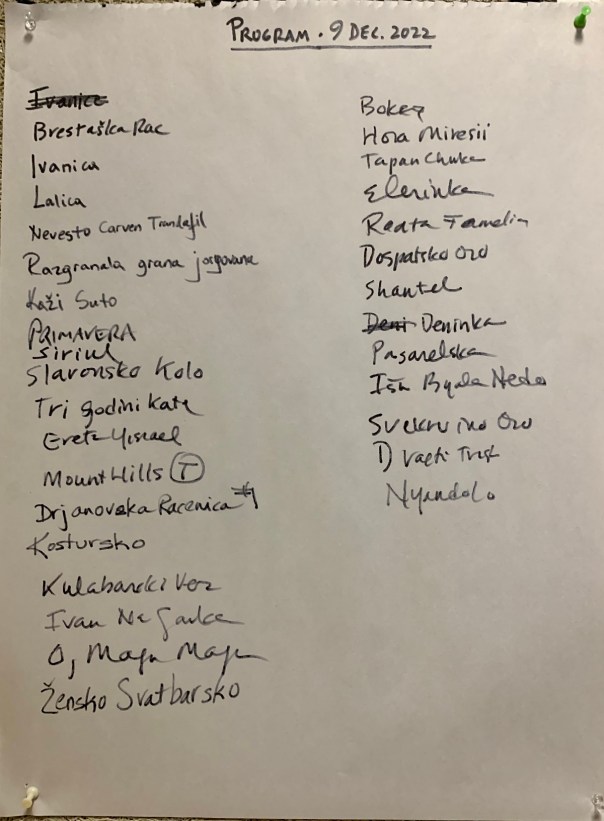 PROGRAM · 9 DEC. 2022
Ivanice
Brestaška Rac
Ivanica
Lalica
Nevesto Carven Trandafil
Razgranala grana jorgovana
Kaži Suto
PRIMAVERA
Siriul
Slavonsko Kolo
Tri godini Kata
Eretz Yisrael
Mount Hills T
Drjanovska Racenica #1
Kostursko
Kulabarski Vez
Ivan
O, Maju Maju
Žensko Svatbarsko
Bokee
Hora Miresii
Tapan Chuka
Elerinka
Reata Famelia
Dospatsko Oro
Shantel
Deni Deninka
Pasarelska
Išu Byala Nedo
Svekrvino Oro
Dvaeti Trst
Nyandolo